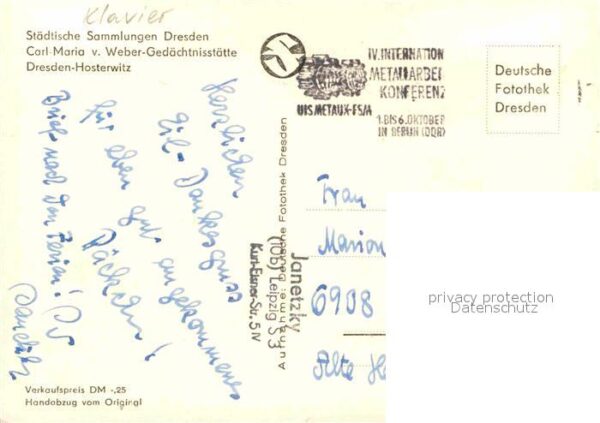 Klavier
Städtische Sammlungen Dresden
Carl-Maria v. Weber-Gedächtnisstätte
Dresden-Hosterwitz
Herzlichen
Eil-Dankesgruss
für eben gut angekommenes
Päckchen!
Brief nach den Ferien! Ihr
Janetzky
Verkaufspreis DM -,25
Handabzug vom Original
Aufnahme: Deutsche Fotothek Dresden
Janetzky
(10b) Leipzig S 3
Kurt-Eisner-Str. 5 IV
IV. INTERNATION
METALLARBEI
KONFERENZ
UIS METAUX-FSM
1. BIS 6. OKTOBER
IN BERLIN (DDR)
Deutsche
Fotothek
Dresden
Frau
Marion
6908
Alte
privacy protection
Datenschutz